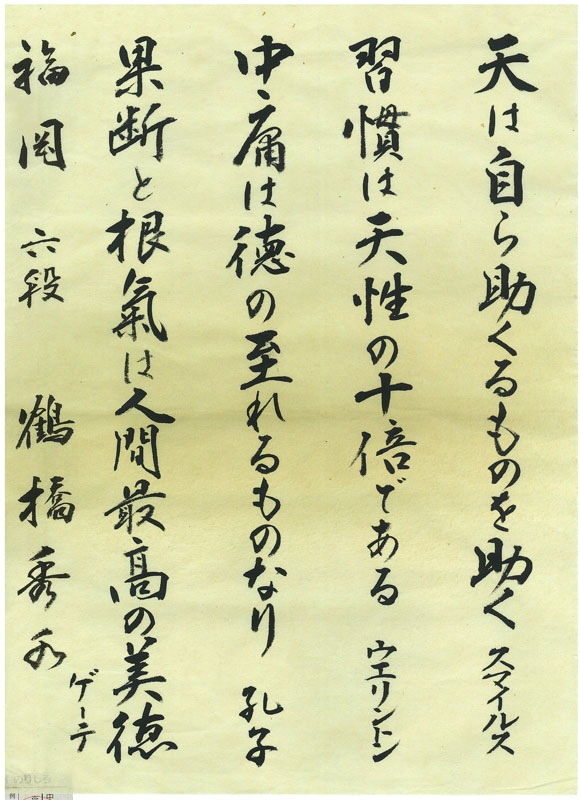 天は自ら助くるものを助く スマイルス
習慣は天性の十倍である ウエリントン
中庸は徳の至れるものなり 孔子
果断と根氣は人間最高の美徳 ゲーテ
福岡 六段 鶴橋秀水